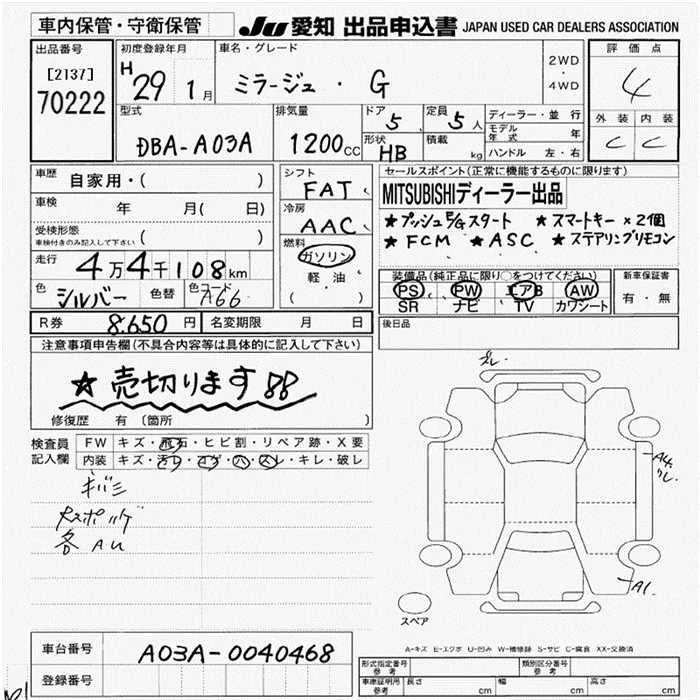 車内保管・守衛保管
JU 愛知 出品申込書 JAPAN USED CAR DEALERS ASSOCIATION
出品番号
[2137]
70222
初度登録年月
H 29 1月
車名・グレード
ミラージュ ・ G
2WD
・
4WD
評価点
4
外装 内装
C C
型式
DBA-A03A
排気量
1200cc
ドア 5
定員 5人
形状 HB
積載 kg
ディーラー・並行
モデル年式 年
ハンドル 左・右
車歴 自家用・( )
車検 年 月( 日)
受検形態
車検付きのみ記入して下さい ( )
走行 4万4千108km
色 シルバー 色替 色コード A66
シフト
FAT
冷房
AAC
燃料
ガソリン
軽・油
( )
セールスポイント(正常に機能するものに限ります)
MITSUBISHIディーラー出品
★プッシュE/Gスタート ★スマートキー×2個
★FCM ★ASC ★ステアリングリモコン
装備品(純正品に限り○をつけてください)
PS PW エアB AW
SR ナビ TV カワシート
新車保証書
有・無
R券 8.650円 名変期限 月 日
後日品
注意事項申告欄(不具合内容等は具体的に記入して下さい)
★売切ります
修復歴 有 〔箇所 〕
検査員記入欄
FW キズ・飛石・ヒビ割・リペア跡・X要
内装 キズ・汚レ・コゲ・ハ・スレ・キレ・破レ
キバミ
各AU
ブレ.
A4.
A1.
スペア
A-キズ E-エクボ U-凹み W-補修跡 S-サビ C-腐食 XX-交換済
車台番号 A03A-0040468
登録番号
形式指定番号
参考
類別区分番号
参考
車庫証明用
参考
長さ cm 幅 cm 高さ cm